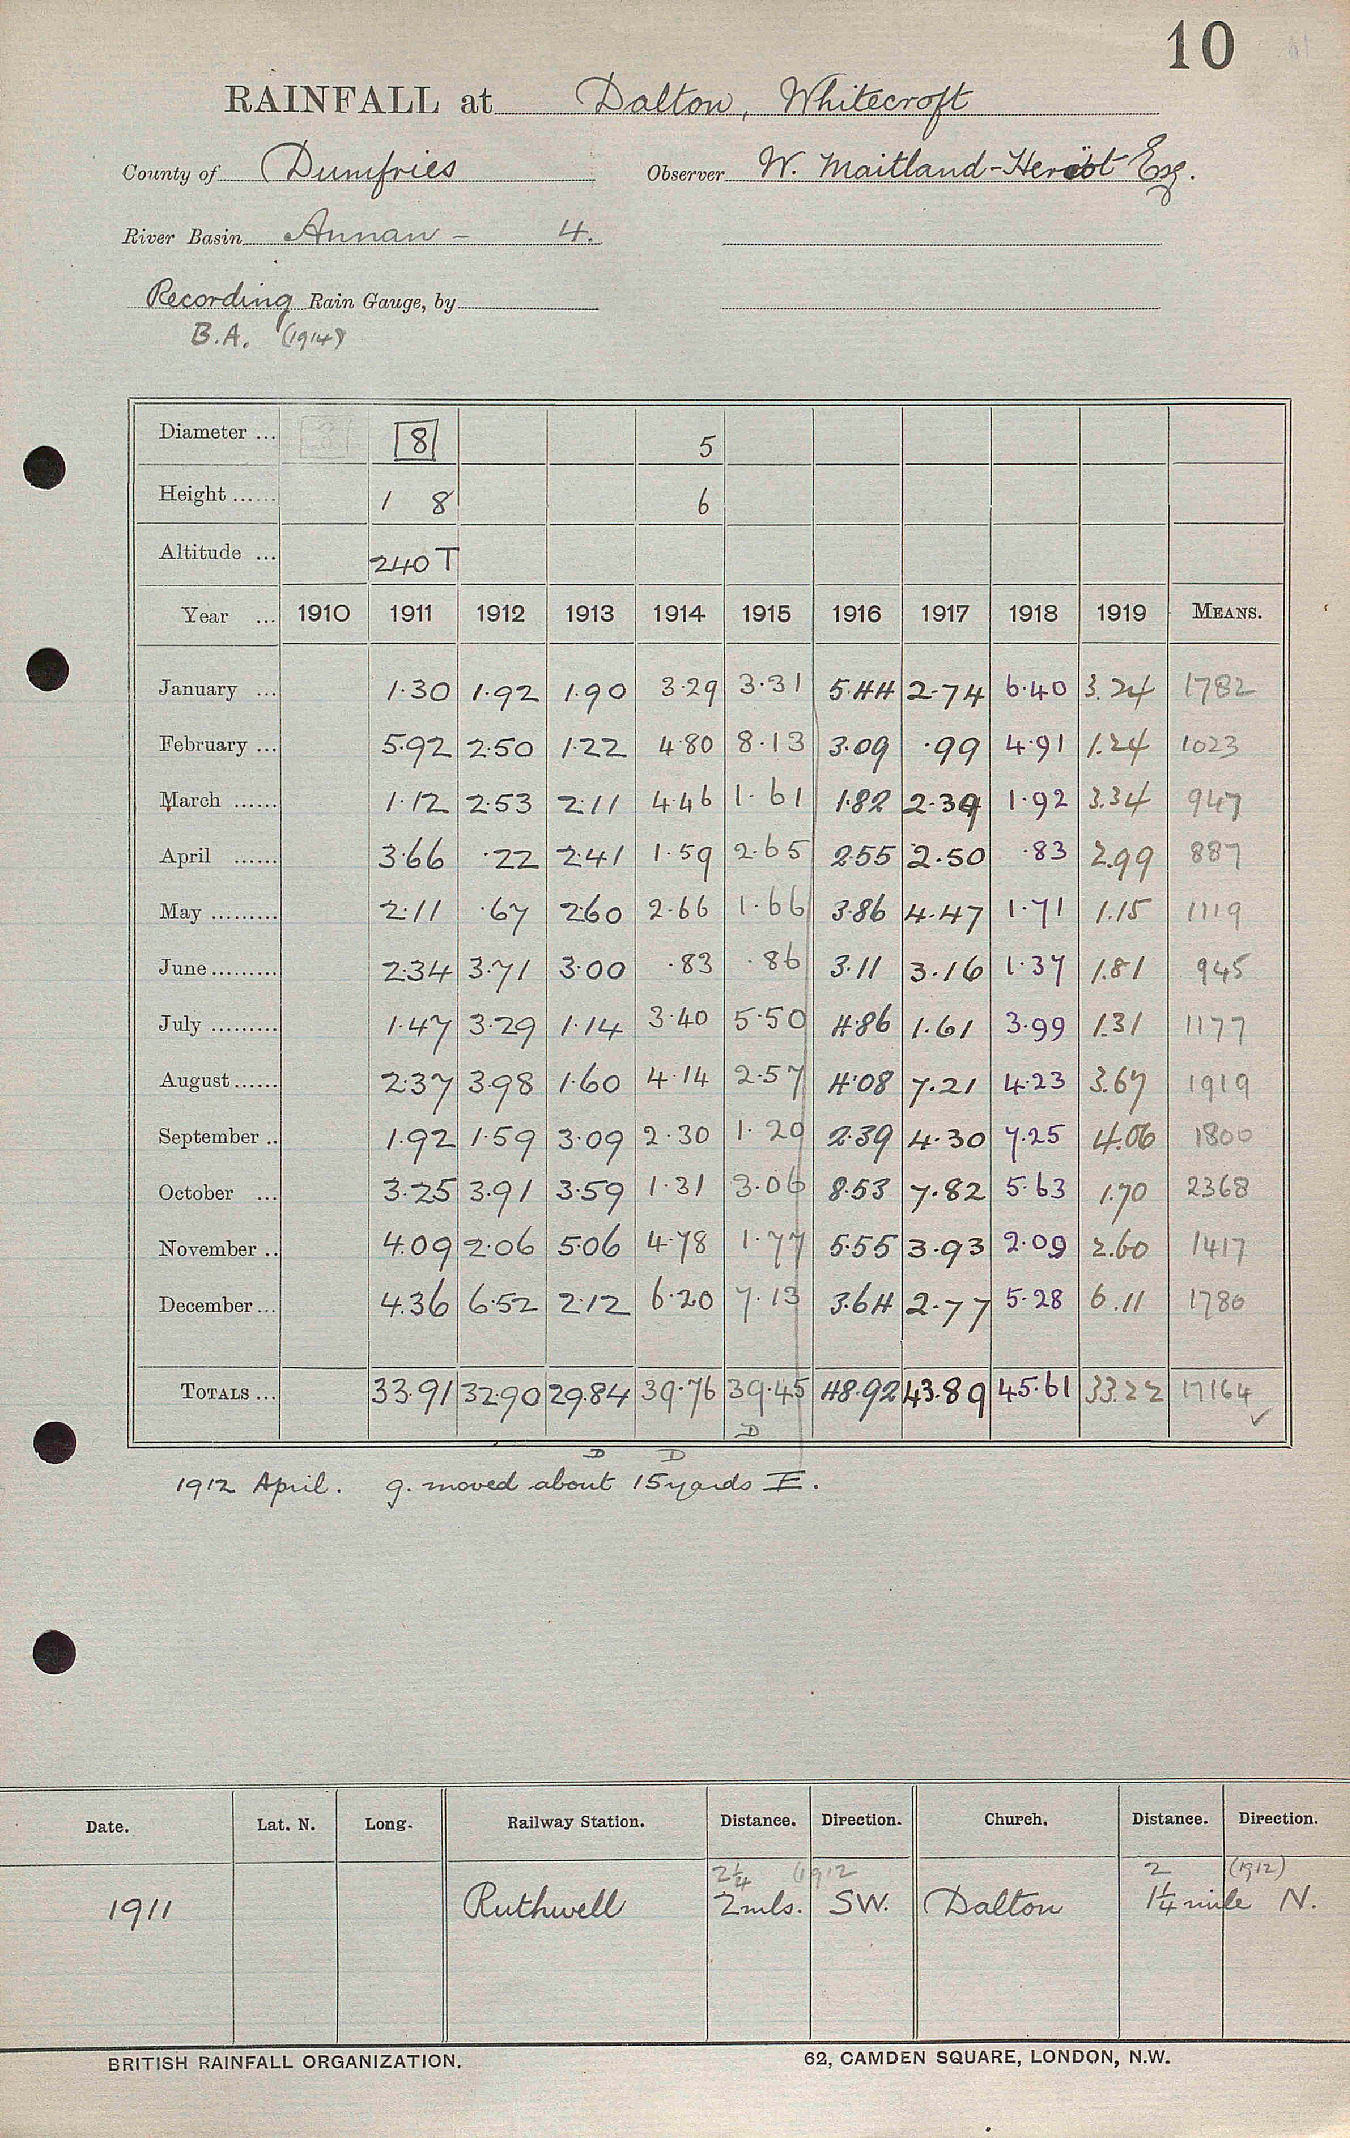 10
RAINFALL at Dalton, Whitecroft
County of Dumfries Observer W. Maitland-Heriot Esq.
River Basin Annan - 4.
Recording Rain Gauge, by
B.A. (1914)
Diameter ... 8 5
Height ...... 1 8 6
Altitude ... 240 T
Year ... 1910 1911 1912 1913 1914 1915 1916 1917 1918 1919 MEANS.
January ... 1.30 1.92 1.90 3.29 3.31 5.44 2.74 6.40 3.24 1782
February ... 5.92 2.50 1.22 4.80 8.13 3.09 .99 4.91 1.24 1023
March ...... 1.12 2.53 2.11 4.46 1.61 1.82 2.39 1.92 3.34 947
April ...... 3.66 .22 2.41 1.59 2.65 2.55 2.50 .83 2.99 887
May ......... 2.11 .67 2.60 2.66 1.66 3.86 4.47 1.71 1.15 1119
June ......... 2.34 3.71 3.00 .83 .86 3.11 3.16 1.37 1.81 945
July ......... 1.47 3.29 1.14 3.40 5.50 4.86 1.61 3.99 1.31 1177
August ...... 2.37 3.98 1.60 4.14 2.57 4.08 7.21 4.23 3.67 1919
September .. 1.92 1.59 3.09 2.30 1.20 2.39 4.30 7.25 4.06 1800
October ... 3.25 3.91 3.59 1.31 3.06 8.53 7.82 5.63 1.70 2368
November .. 4.09 2.06 5.06 4.78 1.77 5.55 3.93 2.09 2.60 1417
December ... 4.36 6.52 2.12 6.20 7.13 3.64 2.77 5.28 6.11 1780
TOTALS ... 33.91 32.90 29.84 39.76 39.45 48.92 43.89 45.61 33.22 17164
D
D D
1912 April. g. moved about 15 yards E.
Date. Lat. N. Long. Railway Station. Distance. Direction. Church. Distance. Direction.
2¼ (1912 2 (1912)
1911 Ruthwell 2 mls. SW. Dalton 1¼ mile N.
BRITISH RAINFALL ORGANIZATION. 62, CAMDEN SQUARE, LONDON, N.W.